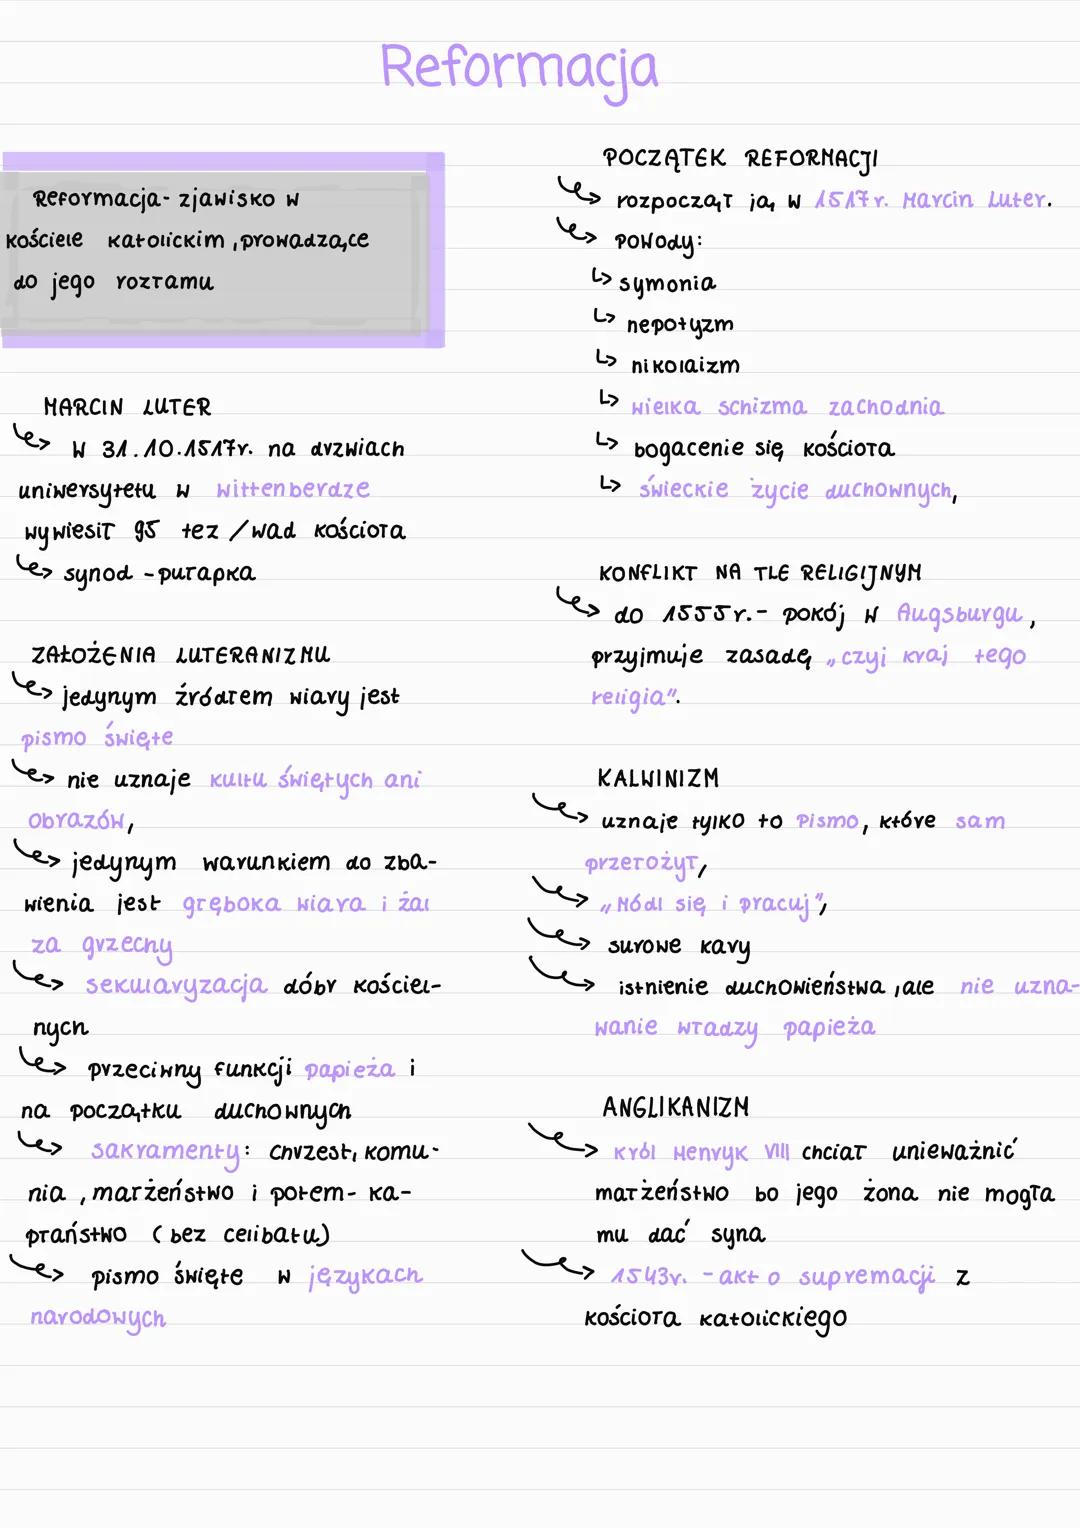 Reformacja
Reformacja- zjawisko w
kościele katolickim, prowadzące
do jego rozłamu
MARCIN LUTER
W 31.10.1517r. na drzwiach
uniwersytetu w wittenberdze
wywiesił 95 tez /wad kościoła
synod - pułapka
ZAŁOŻENIA LUTERANIZMU
jedynym źródłem wiary jest
pismo święte
nie uznaje kultu świętych ani
obrazów,
jedynym warunkiem do zba-
wienia jest gręboka wiara i żal
za grzechy
sekularyzacja dóbr kościel-
nych
przeciwny funkcji papieża i
na początku duchownych
sakramenty: chrzest, komu-
nia, małżeństwo i potem- ka-
płaństwo (bez celibatu)
pismo święte w językach
narodowych
POCZĄTEK REFORMACJI
rozpoczął ją w 1517r. Marcin Luter.
powody:
symonia
nepotyzm
nikolaizm
wielka schizma zachodnia
bogacenie się kościoła
świeckie życie duchownych,
KONFLIKT NA TLE RELIGIJNYM
do 1555r.- pokój w Augsburgu,
przyjmuje zasadę „czyj kraj tego
religia".
KALWINIZM
uznaje tylko to Pismo, które sam
przełożył,
„Módl się i pracuj",
surowe kary
istnienie duchowieństwa, ale nie uzna-
wanie władzy papieża
ANGLIKANIZM
król Henryk VIII chciał unieważnić
małżeństwo bo jego żona nie mogła
mu dać syna
1543r. - akt o supremacji z
kościoła katolickiego